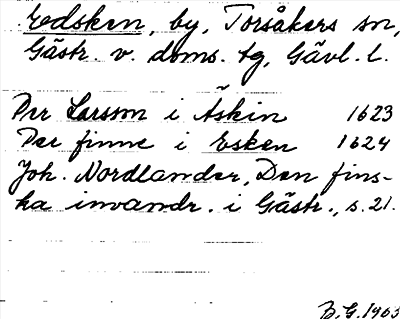 Edsken, by, Torsåkers sn,
Gästr. v. doms. tg, Gävl. l.
Per Larsson i Äskin 1623
Per finne i Esken 1624
Joh. Nordlander, Den fins-
ka invandr. i Gästr., s. 21.
B.G. 1963